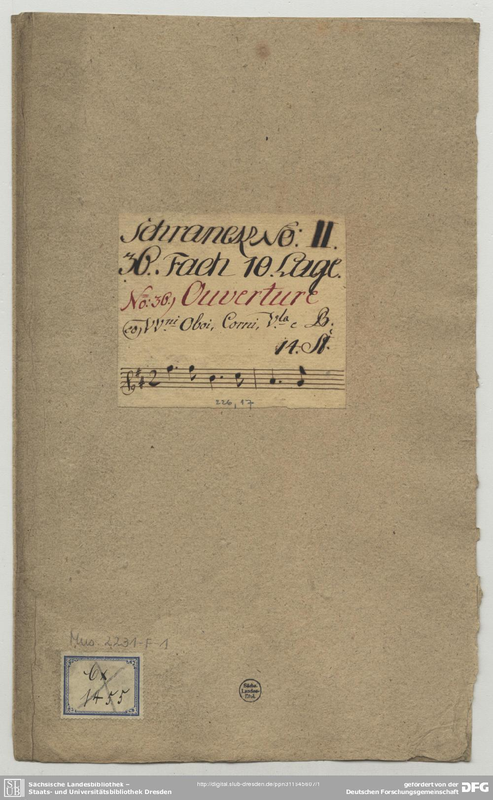 Schranck No: II.
36. Fach 10. Lage.
No: 36.) Ouverture
co VVni Oboi, Corni, Vla e B.
14. St:
224, 17
Mus. 2231-F-1
Cx
1455
Sächs.
Landes-
Bibl.
Sächsische Landesbibliothek –
Staats- und Universitätsbibliothek Dresden
gefördert von der
Deutschen Forschungsgemeinschaft
DFG